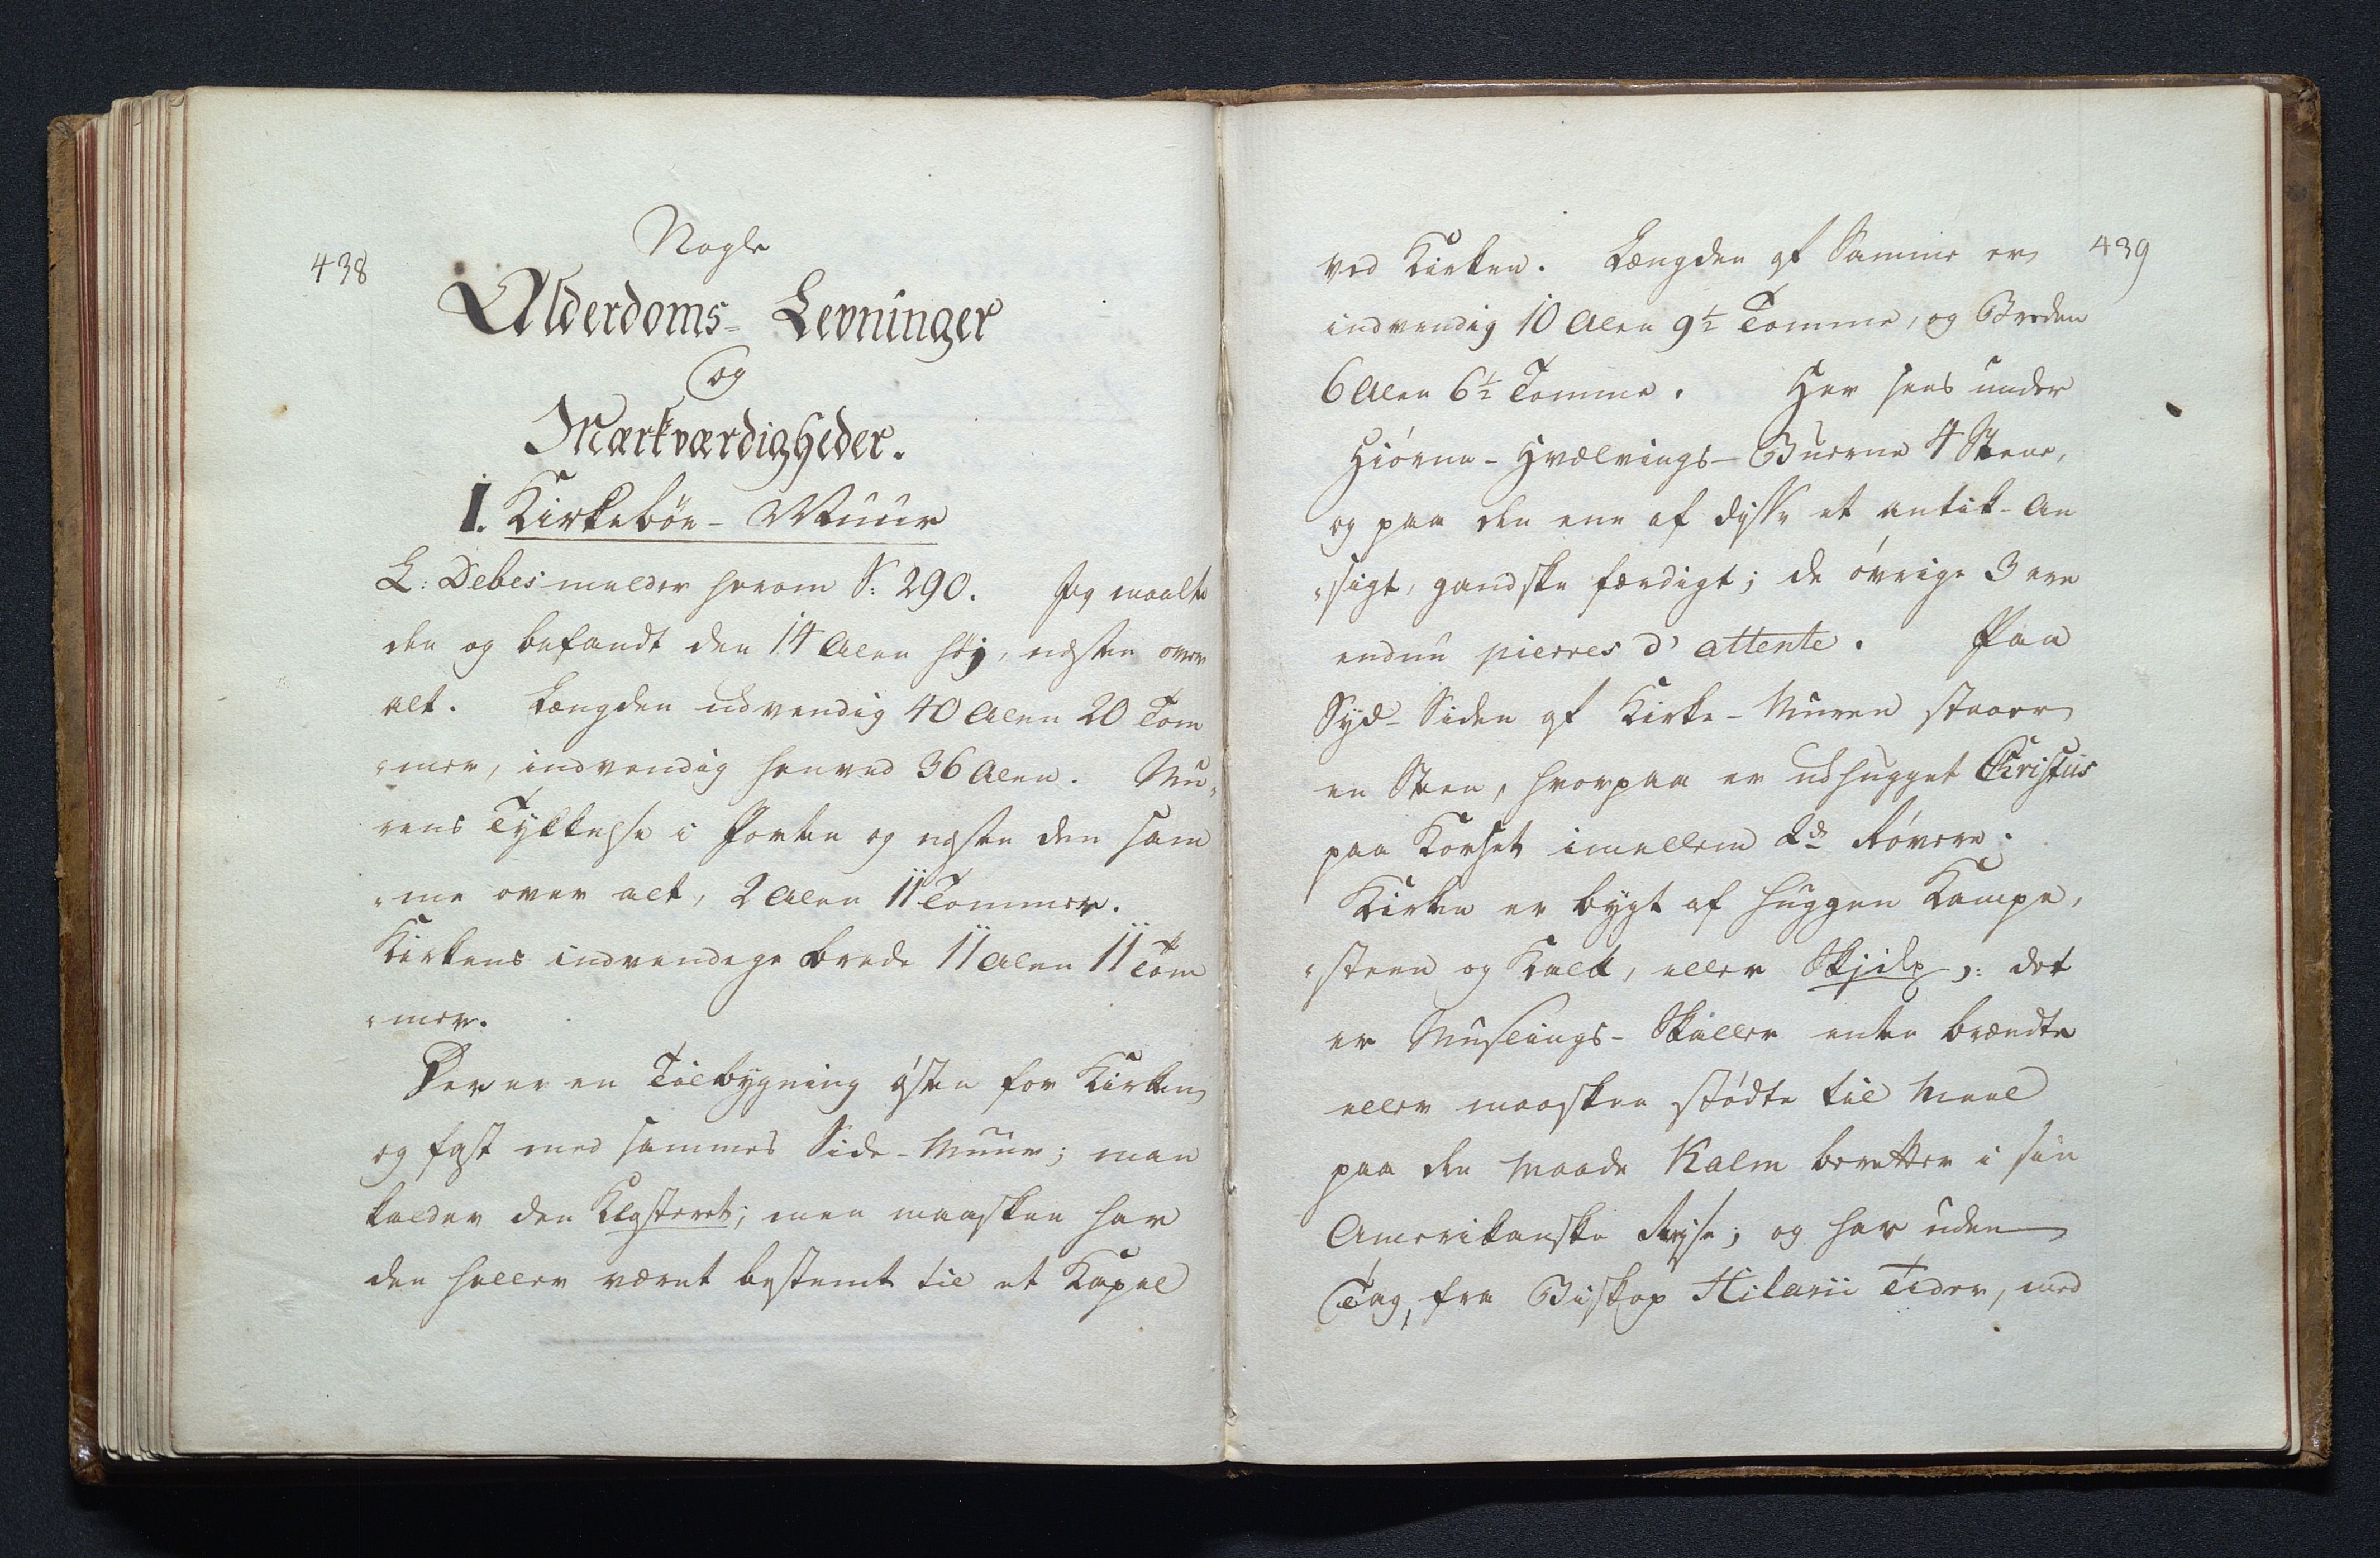 438
Nogle
Alderdoms- Levninger
og
Mærkværdigheder.
1. Kirkebøe - Muur
L: Debes melder herom S: 290. Jeg maalte
den og befandt den 14 Alen høj, næsten over
alt. Længden udvendig 40 Alen 20 Tom
„mer, indvendig henved 36 Alen. Mu„
rens Tykkelse i Porten og næsten den sam
„me over alt, 2 Alen 11 Tommer.
Kirkens indvendige brede 11 Alen 11 Tom
„mer.
Der er en Tilbygning østen for Kirken
og fast med sammes Side-Muur; man
kalder den Klosteret; men maaskee har
den heller været bestemt til et Kapel
439
ved Kirken. Længden af Samme er
indvendig 10 Alen 9½ Tomme, og Breden
6 Alen 6½ Tomme. Her sees under
Hiørne-Hvælvings-Buerne 4 Stene,
og paa den ene af disse et antik-An
„sigt, gandske færdigt; de øvrige 3 ere
endnu pierres d'attente. Paa
Syd-Siden af Kirke-Muren staaer
en Steen, hvorpaa er udhugget Christus
paa Korset imellem 2de Røvere.
Kirken er bygt af huggen Kampe,
„steen og Kalk, eller Skjilp ɔ: det
er Muslings-Skaller enten brændte
eller maaskee stødte til Meel
paa den Maade Kalm beretter i sin
Amerikanske Rejse; og har uden
Tag, fra Biskop Hilarii Tider, med